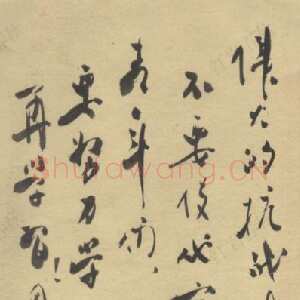 伟大的抗战
不要使
青年们、
要努力学
再学习！
Shufawang.CN